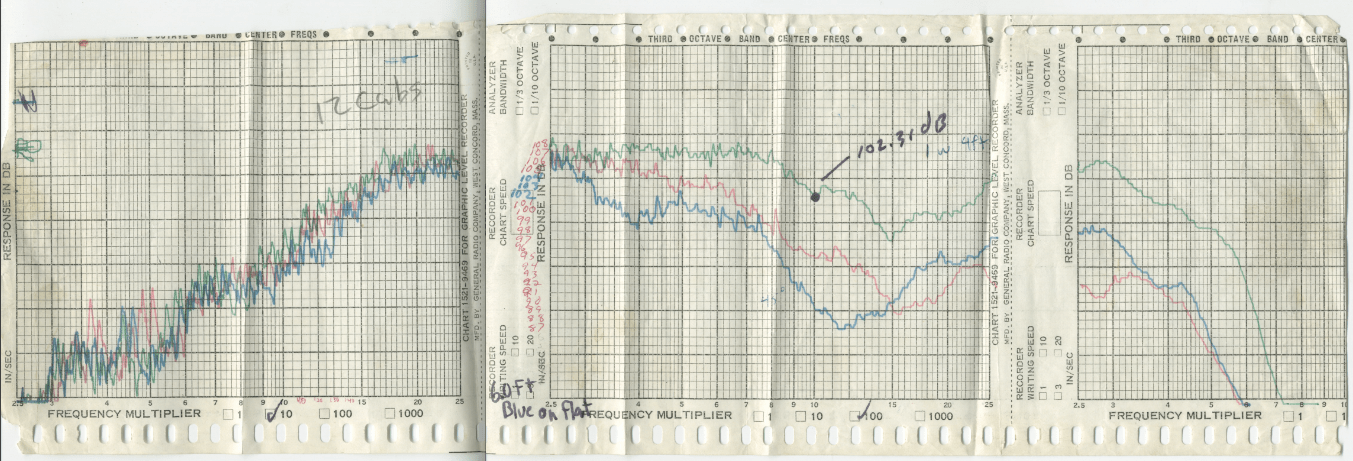 OCTAVE BAND CENTER FREQS
12 Cabs
RESPONSE IN DB
IN/SEC
2.5 3 4 5 6 7 8 9 10 15 20 25
FREQUENCY MULTIPLIER 1 10 100 1000
CHART 1521-9469 FOR GRAPHIC LEVEL RECORDER
MFD. BY GENERAL RADIO COMPANY, WEST CONCORD, MASS.
THIRD OCTAVE BAND CENTER FREQS
ANALYZER BANDWIDTH
1/3 OCTAVE
1/10 OCTAVE
RECORDER CHART SPEED
RESPONSE IN DB
RECORDER WRITING SPEED
10
20
IN/SEC
108
107
106
102
100
99
98
97
94
93
92
91
90
89
88
87
102.31 dB
1 W 4ft
60Ft
Blue on Flat
2.5 3 4 5 6 7 8 9 10 15 20 25
FREQUENCY MULTIPLIER 1 10 100 1000
CHART 1521-9469 FOR GRAPHIC LEVEL RECORDER
MFD. BY GENERAL RADIO COMPANY, WEST CONCORD, MASS.
THIRD OCTAVE BAND CENTER
ANALYZER BANDWIDTH
1/3 OCTAVE
1/10 OCTAVE
RECORDER CHART SPEED
RESPONSE IN DB
RECORDER WRITING SPEED
1 10
3 20
IN/SEC
2.5 3 4 5 6 7 8 9 10
FREQUENCY MULTIPLIER 1 1